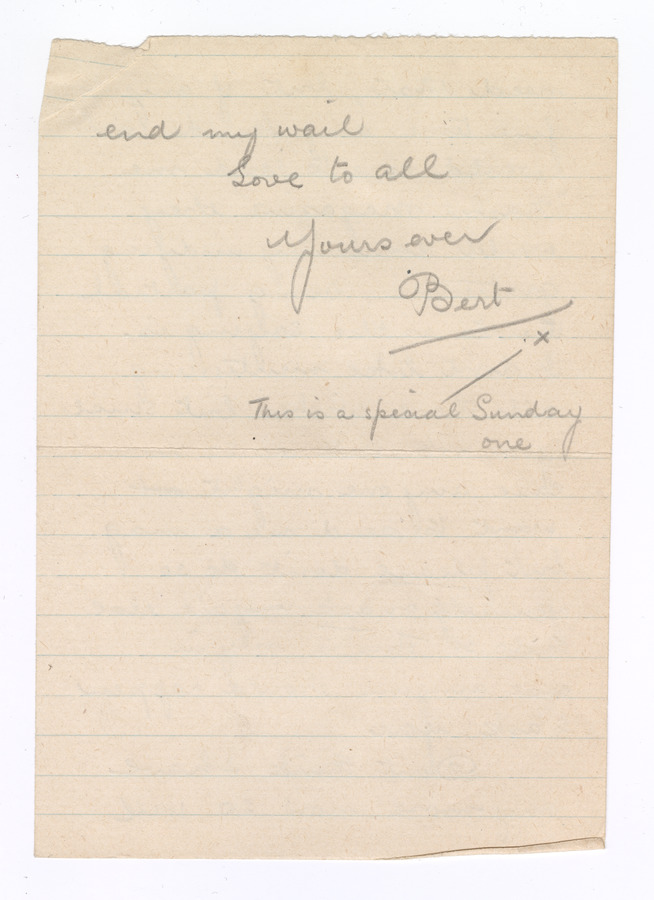 end my wail
Love to all
Yours ever
Bert
x
This is a special Sunday
one